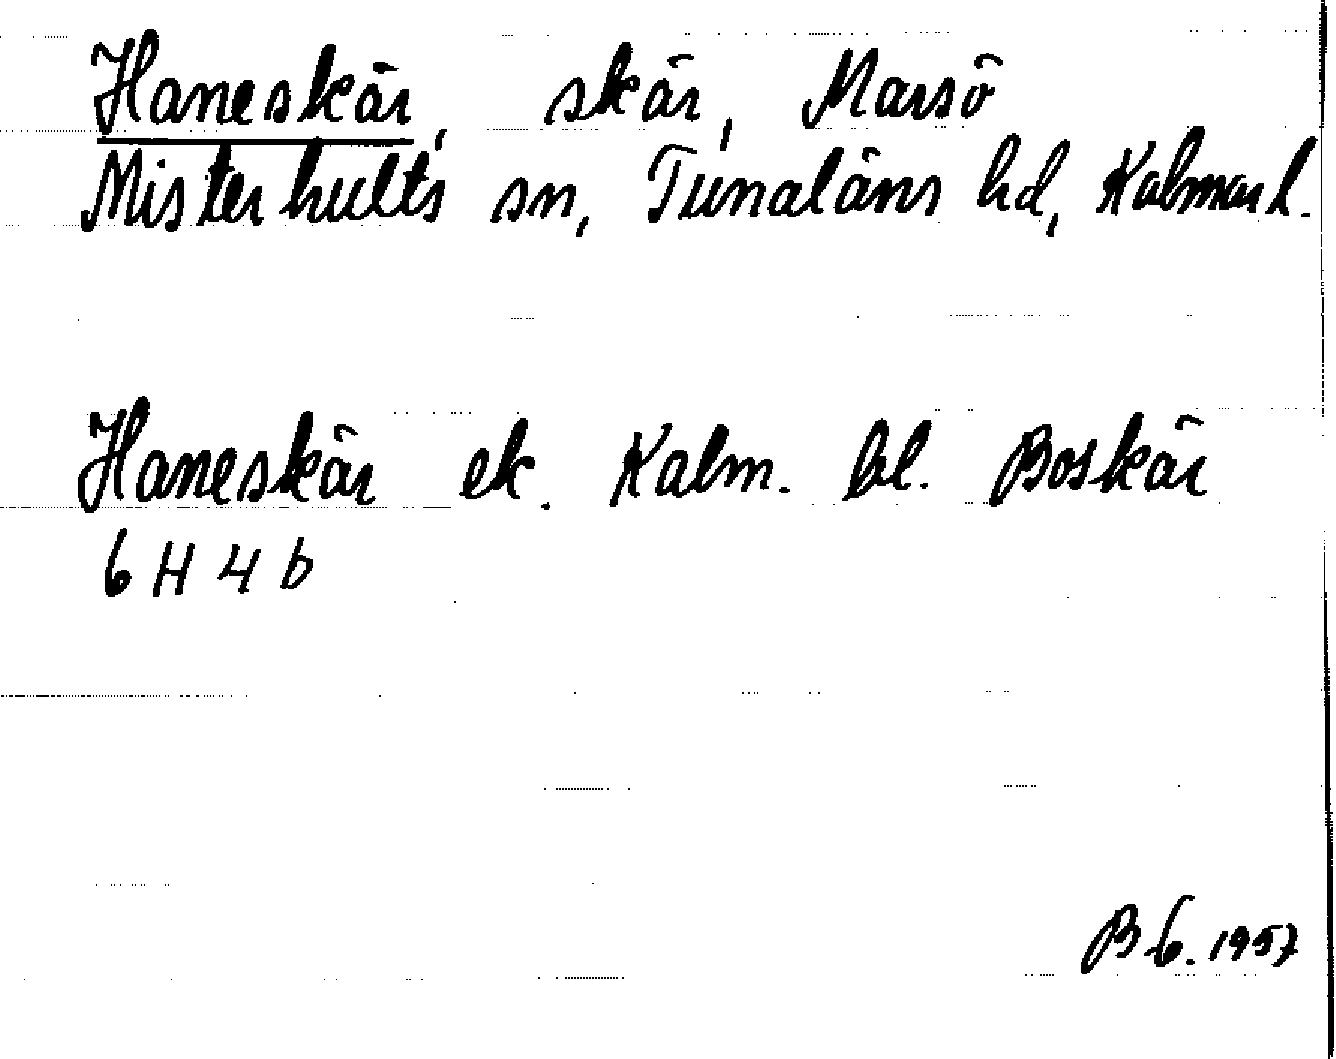 Haneskär, skär, Marsö
Misterhults sn, Tunaläns hd, Kalmar l.
Haneskär ek. Kalm. bl. Boskär
6 H 4 b
B 6. 1957